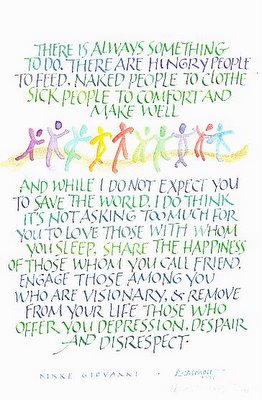 THERE IS ALWAYS SOMETHING
TO DO. THERE ARE HUNGRY PEOPLE
TO FEED. NAKED PEOPLE TO CLOTHE
SICK PEOPLE TO COMFORT AND
MAKE WELL
AND WHILE I DO NOT EXPECT YOU
TO SAVE THE WORLD, I DO THINK
IT'S NOT ASKING TOO MUCH FOR
YOU TO LOVE THOSE WITH WHOM
YOU SLEEP, SHARE THE HAPPINESS
OF THOSE WHOM YOU CALL FRIEND,
ENGAGE THOSE AMONG YOU
WHO ARE VISIONARY, & REMOVE
FROM YOUR LIFE THOSE WHO
OFFER YOU DEPRESSION, DESPAIR
AND DISRESPECT.
NIKKI GIOVANNI